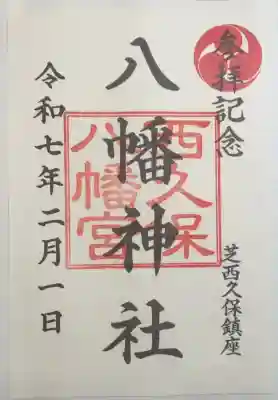 參拝記念
芝西久保鎮座
八幡神社
西久保
八幡宮
令和七年二月一日